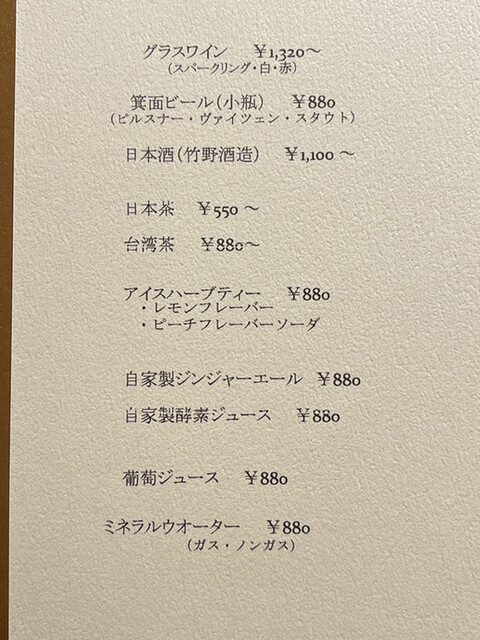 グラスワイン ￥1,320～
（スパークリング・白・赤）
箕面ビール（小瓶） ￥880
（ピルスナー・ヴァイツェン・スタウト）
日本酒（竹野酒造） ￥1,100 ～
日本茶 ￥550 ～
台湾茶 ￥880～
アイスハーブティー ￥880
・レモンフレーバー
・ピーチフレーバーソーダ
自家製ジンジャーエール ￥880
自家製酵素ジュース ￥880
葡萄ジュース ￥880
ミネラルウオーター ￥880
（ガス・ノンガス）